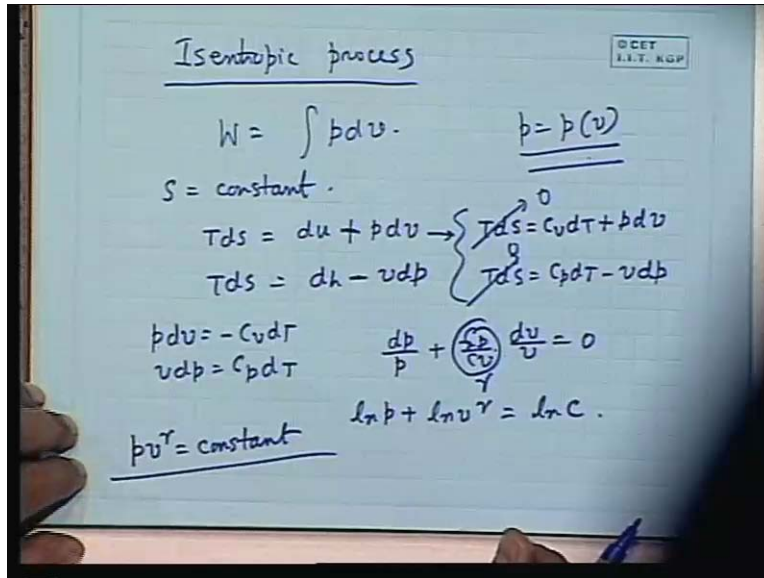 Isentropic process
© CET
I.I.T. KGP
W = ∫ pdv.
p = p(v)
S = constant.
Tds = du + pdv → { Tds = CvdT + pdv
0
Tds = dh - vdp { Tds = CpdT - vdp
0
pdv = - CvdT
vdp = CpdT
dp/p + (Cp/Cv) dv/v = 0
γ
ln p + ln v^γ = ln C.
pv^γ = constant